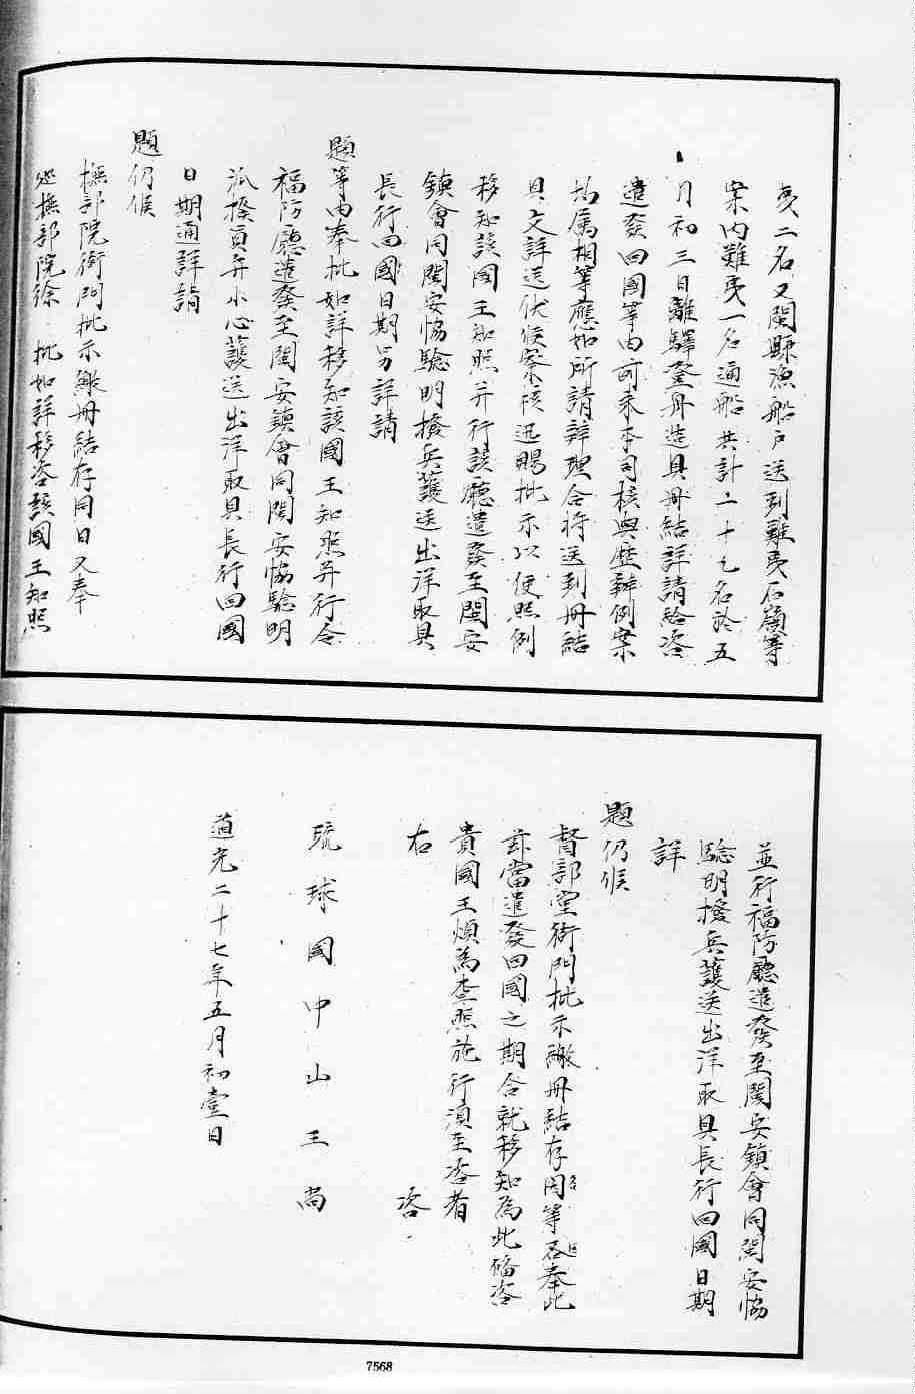 夷二名又閩縣漁船戶送到難夷石嶺等
案内難夷一名通船共計二十七名於五
月初三日離驛登舟造具冊結詳請給咨
遣發回國等由前來本司核與歷辦例案
均屬相等應如所請辦理合將送到冊結
具文詳送伏候察核迅賜批示以便照例
移知該國王知照并行該廳遣發至閩安
鎮會同閩安協驗明撥兵護送出洋取具
長行回國日期另詳請
題等由奉批如詳移知該國王知照并行令
福防廳遣發至閩安鎮會同閩安協驗明
派撥員弁小心護送出洋取具長行回國
日期通詳請
題仍候
撫部院衙門批示繳冊結存同日又奉
巡撫部院徐 批如詳移咨該國王知照
並行福防廳遣發至閩安鎮會同閩安協
驗明撥兵護送出洋取具長行回國日期
詳
題仍候
督部堂衙門批示繳冊結存同等因奉此
茲當遣發回國之期合就移知為此備咨
貴國王煩為查照施行須至咨者
右 咨
琉球國中山王尚
道光二十七年五月初壹日
7568